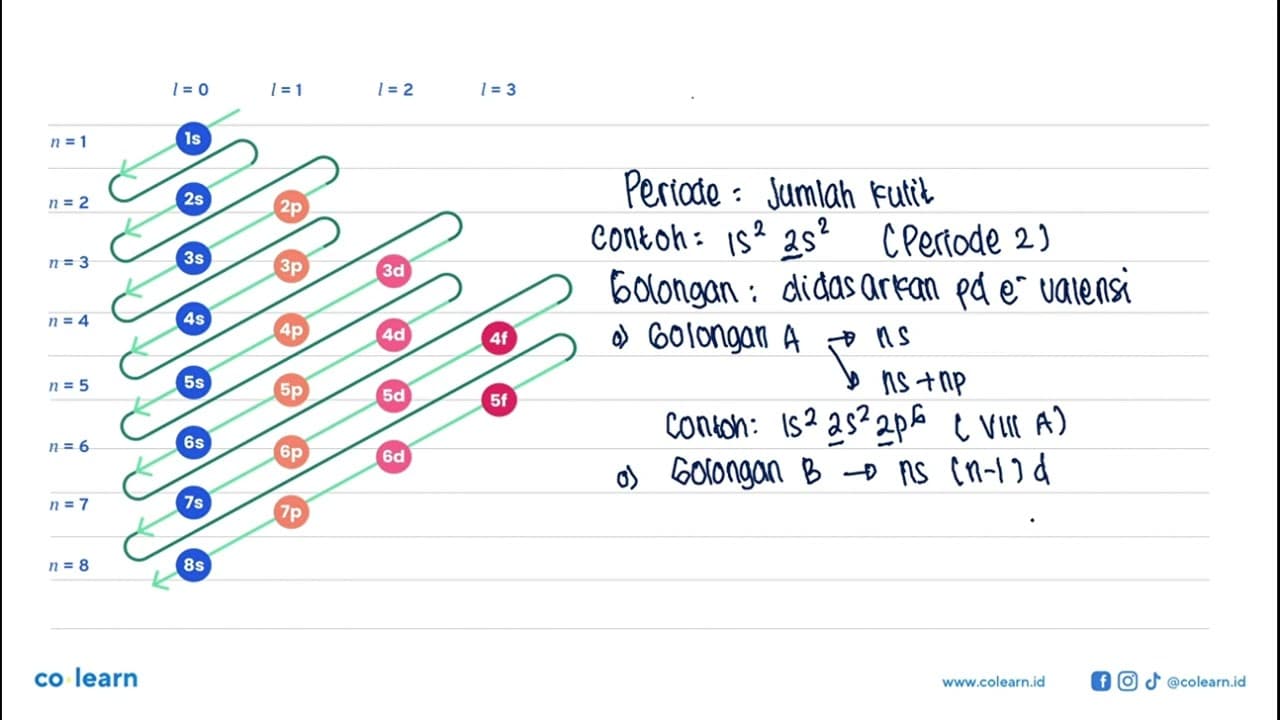 l = 0 l = 1 l = 2 l = 3
n = 1 1s
n = 2 2s 2p
n = 3 3s 3p 3d
n = 4 4s 4p 4d 4f
n = 5 5s 5p 5d 5f
n = 6 6s 6p 6d
n = 7 7s 7p
n = 8 8s
Periode : Jumlah kulit
Contoh : 1s² 2s² (Periode 2)
Golongan : didasarkan pd e⁻ valensi
a) Golongan A → ns
ns + np
Contoh : 1s² 2s² 2p⁶ ( VIII A)
o) Golongan B → ns (n-1) d
co learn
www.colearn.id @colearn.id